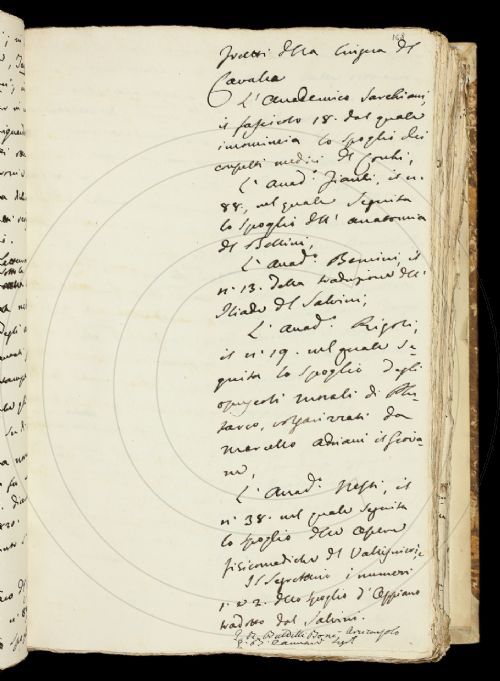 della lingua del
Cavalca
L'Accademico Sarchiani,
il fascicolo 18. dal quale
incomincia lo spoglio dei
consulti medici del Cocchi,
L'Accad.º Fiacchi, il n.
88, nel quale seguita
lo spoglio dell'anatomia
del Bellini,
L'Accad.º Bencini, il
n.º 13. della traduzione dell'
Iliade del Salvini;
L'Accad.º Rigoli,
il n.º 19. nel quale se-
guita lo spoglio degli
opuscoli morali di Plu-
tarco, volgarizzati da
Marcello Adriani il giova-
ne,
L'Accad.º Nesti, il
n.º 38. nel quale seguita
lo spoglio delle opere
fisicomediche del Vallisnieri.
Il Segretario i numeri
1. e 2. dello spoglio d'Oppiano
tradotto dal Salvini.
Baldelli Boni Arciconsolo